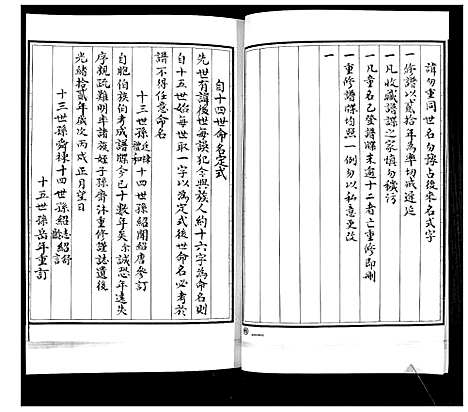 諱勿重同世名勿豫占後來名式字
一修譜以貳十年為率切戒遲延
一凡收藏譜牒之家慎勿穢污
一凡童名已登譜牒未逾十二者亡重修即刪
一重修譜牒均照一例勿以私意更改
一
自十四世命名定式
先世有諱後世每誤犯今與族人約十六字為命名則
自十五世始每世取一字以為定式後世命名必考於
譜不得任意命名
十三世孫 近棟 禮和 十四世孫紹聞紹唐參訂
自胞伯族伯考成譜牒今已十數年矣余誠恐年遠失
序親疏難明率諸族姪子孫齋沐重修謹誌遺後
光緒拾貳年歲次丙戌正月望日
十三世孫齊棟十四世孫紹 志 紹 舒 訂
十五世孫岳年重訂